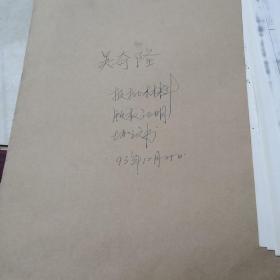 吴奇隆
报批材料
版权证明
协议书
93年12月25日